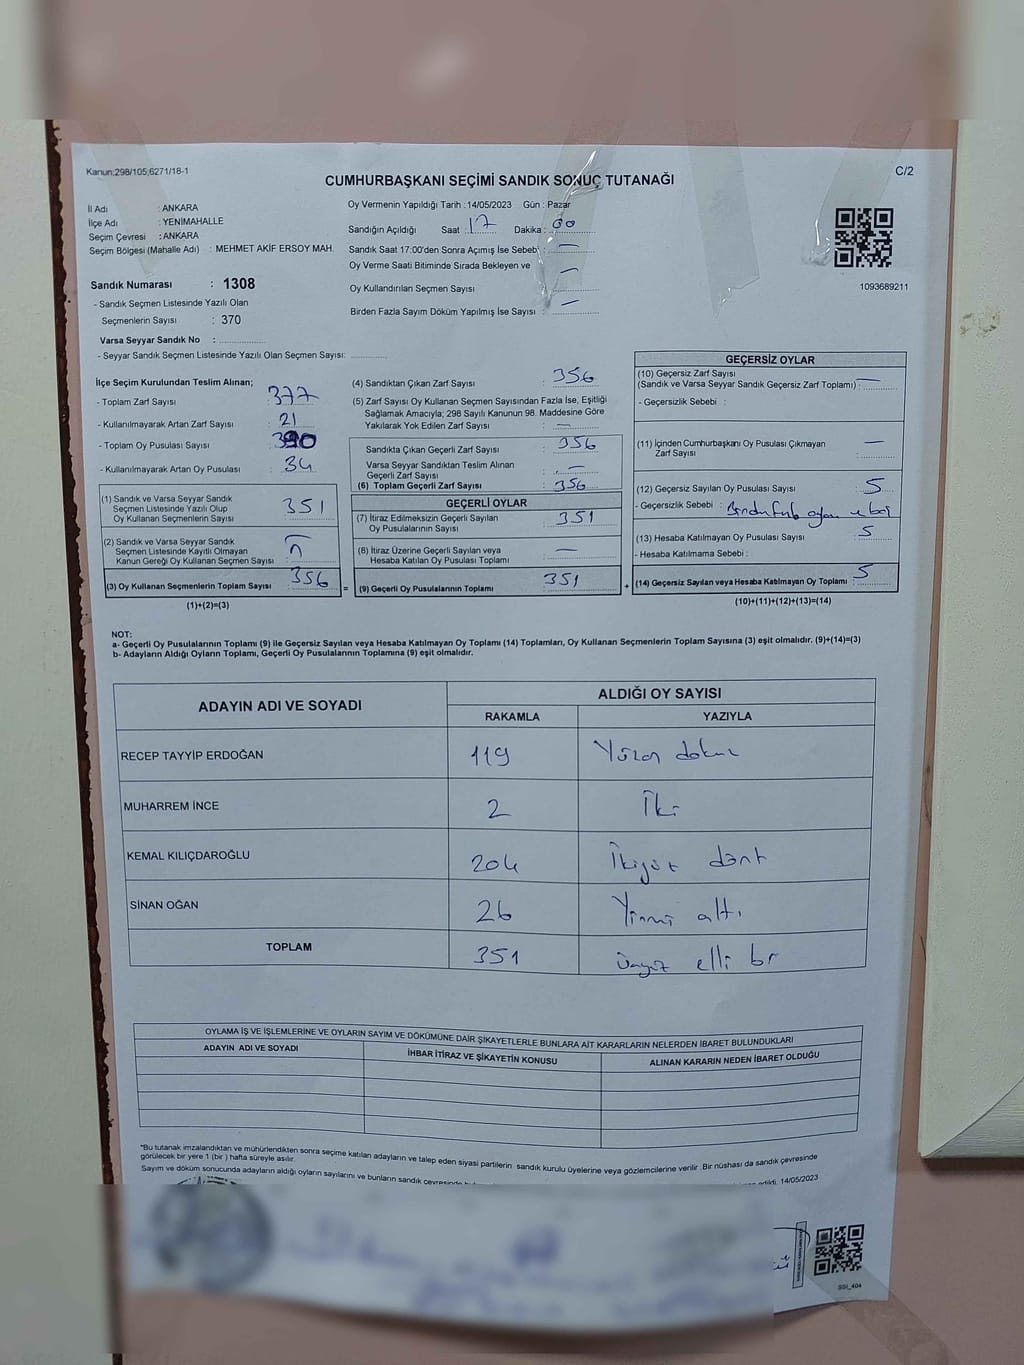 Kanun:298/105;6271/18-1
C/2
CUMHURBAŞKANI SEÇİMİ SANDIK SONUÇ TUTANAĞI
İl Adı : ANKARA
İlçe Adı : YENİMAHALLE
Seçim Çevresi : ANKARA
Seçim Bölgesi (Mahalle Adı) : MEHMET AKİF ERSOY MAH.
Oy Vermenin Yapıldığı Tarih :14/05/2023 Gün : Pazar
Sandığın Açıldığı Saat : 17 Dakika : 00
Sandık Saat 17:00'den Sonra Açımış İse Sebebi : —
Oy Verme Saati Bitiminde Sırada Bekleyen ve
Oy Kullandırılan Seçmen Sayısı : —
Birden Fazla Sayım Döküm Yapılmış İse Sayısı : —
1093689211
Sandık Numarası : 1308
- Sandık Seçmen Listesinde Yazılı Olan
Seçmenlerin Sayısı : 370
Varsa Seyyar Sandık No :
- Seyyar Sandık Seçmen Listesinde Yazılı Olan Seçmen Sayısı:
İlçe Seçim Kurulundan Teslim Alınan;
- Toplam Zarf Sayısı : 377
- Kullanılmayarak Artan Zarf Sayısı : 21
- Toplam Oy Pusulası Sayısı :
- Kullanılmayarak Artan Oy Pusulası : 34
(1) Sandık ve Varsa Seyyar Sandık
Seçmen Listesinde Yazılı Olup
Oy Kullanan Seçmenlerin Sayısı : 351
(2) Sandık ve Varsa Seyyar Sandık
Seçmen Listesinde Kayıtlı Olmayan
Kanun Gereği Oy Kullanan Seçmen Sayısı :
(3) Oy Kullanan Seçmenlerin Toplam Sayısı : 356
(1)+(2)=(3)
(4) Sandıktan Çıkan Zarf Sayısı : 356
(5) Zarf Sayısı Oy Kullanan Seçmen Sayısından Fazla İse, Eşitliği
Sağlamak Amacıyla; 298 Sayılı Kanunun 98. Maddesine Göre
Yakılarak Yok Edilen Zarf Sayısı : —
Sandıkta Çıkan Geçerli Zarf Sayısı : 356
Varsa Seyyar Sandıktan Teslim Alınan
Geçerli Zarf Sayısı : —
(6) Toplam Geçerli Zarf Sayısı : 356
GEÇERLİ OYLAR
(7) İtiraz Edilmeksizin Geçerli Sayılan
Oy Pusulalarının Sayısı : 351
(8) İtiraz Üzerine Geçerli Sayılan veya
Hesaba Katılan Oy Pusulası Toplamı : —
= (9) Geçerli Oy Pusulalarının Toplamı : 351
GEÇERSİZ OYLAR
(10) Geçersiz Zarf Sayısı
(Sandık ve Varsa Seyyar Sandık Geçersiz Zarf Toplamı) : —
- Geçersizlik Sebebi :
(11) İçinden Cumhurbaşkanı Oy Pusulası Çıkmayan
Zarf Sayısı : —
(12) Geçersiz Sayılan Oy Pusulası Sayısı : 5
- Geçersizlik Sebebi :
(13) Hesaba Katılmayan Oy Pusulası Sayısı : 5
- Hesaba Katılmama Sebebi :
+ (14) Geçersiz Sayılan veya Hesaba Katılmayan Oy Toplamı : 5
(10)+(11)+(12)+(13)=(14)
NOT:
a- Geçerli Oy Pusulalarının Toplamı (9) ile Geçersiz Sayılan veya Hesaba Katılmayan Oy Toplamı (14) Toplamları, Oy Kullanan Seçmenlerin Toplam Sayısına (3) eşit olmalıdır. (9)+(14)=(3)
b- Adayların Aldığı Oyların Toplamı, Geçerli Oy Pusulalarının Toplamına (9) eşit olmalıdır.
ADAYIN ADI VE SOYADI
ALDIĞI OY SAYISI
RAKAMLA YAZIYLA
RECEP TAYYİP ERDOĞAN 119 Yüzon dokuz
MUHARREM İNCE 2 İki
KEMAL KILIÇDAROĞLU 204 İkiyüz dört
SİNAN OĞAN 26 Yirmi altı
TOPLAM 351 üçyüz elli bir
OYLAMA İŞ VE İŞLEMLERİNE VE OYLARIN SAYIM VE DÖKÜMÜNE DAİR ŞİKAYETLERLE BUNLARA AİT KARARLARIN NELERDEN İBARET BULUNDUKLARI
ADAYIN ADI VE SOYADI İHBAR İTİRAZ VE ŞİKAYETİN KONUSU ALINAN KARARIN NEDEN İBARET OLDUĞU
*Bu tutanak imzalandıktan ve mühürlendikten sonra seçime katılan adayların ve talep eden siyasi partilerin sandık kurulu üyelerine veya gözlemcilerine verilir .Bir nüshası da sandık çevresinde
görülecek bir yere 1 (bir ) hafta süreyle asılır.
Sayım ve döküm sonucunda adayların aldığı oyların sayılarını ve bunların sandık çevresinde edildi. 14/05/2023
SSI_404